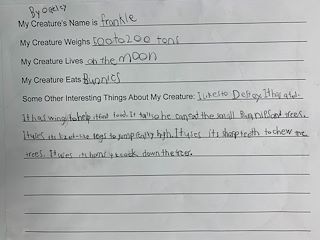 By
My Creature's Name is frankle
My Creature Weighs 500to200 tons
My Creature Lives on the moon
My Creature Eats Bunnies
Some Other Interesting Things About My Creature: Likes to Destroy It has a tail.
It has wings to help it find food. It is tall so he can eat the small Bunnies and trees.
It uses its legs to jump really high. It uses its sharp teeth to chew the
trees. It uses its horns to down the tree.